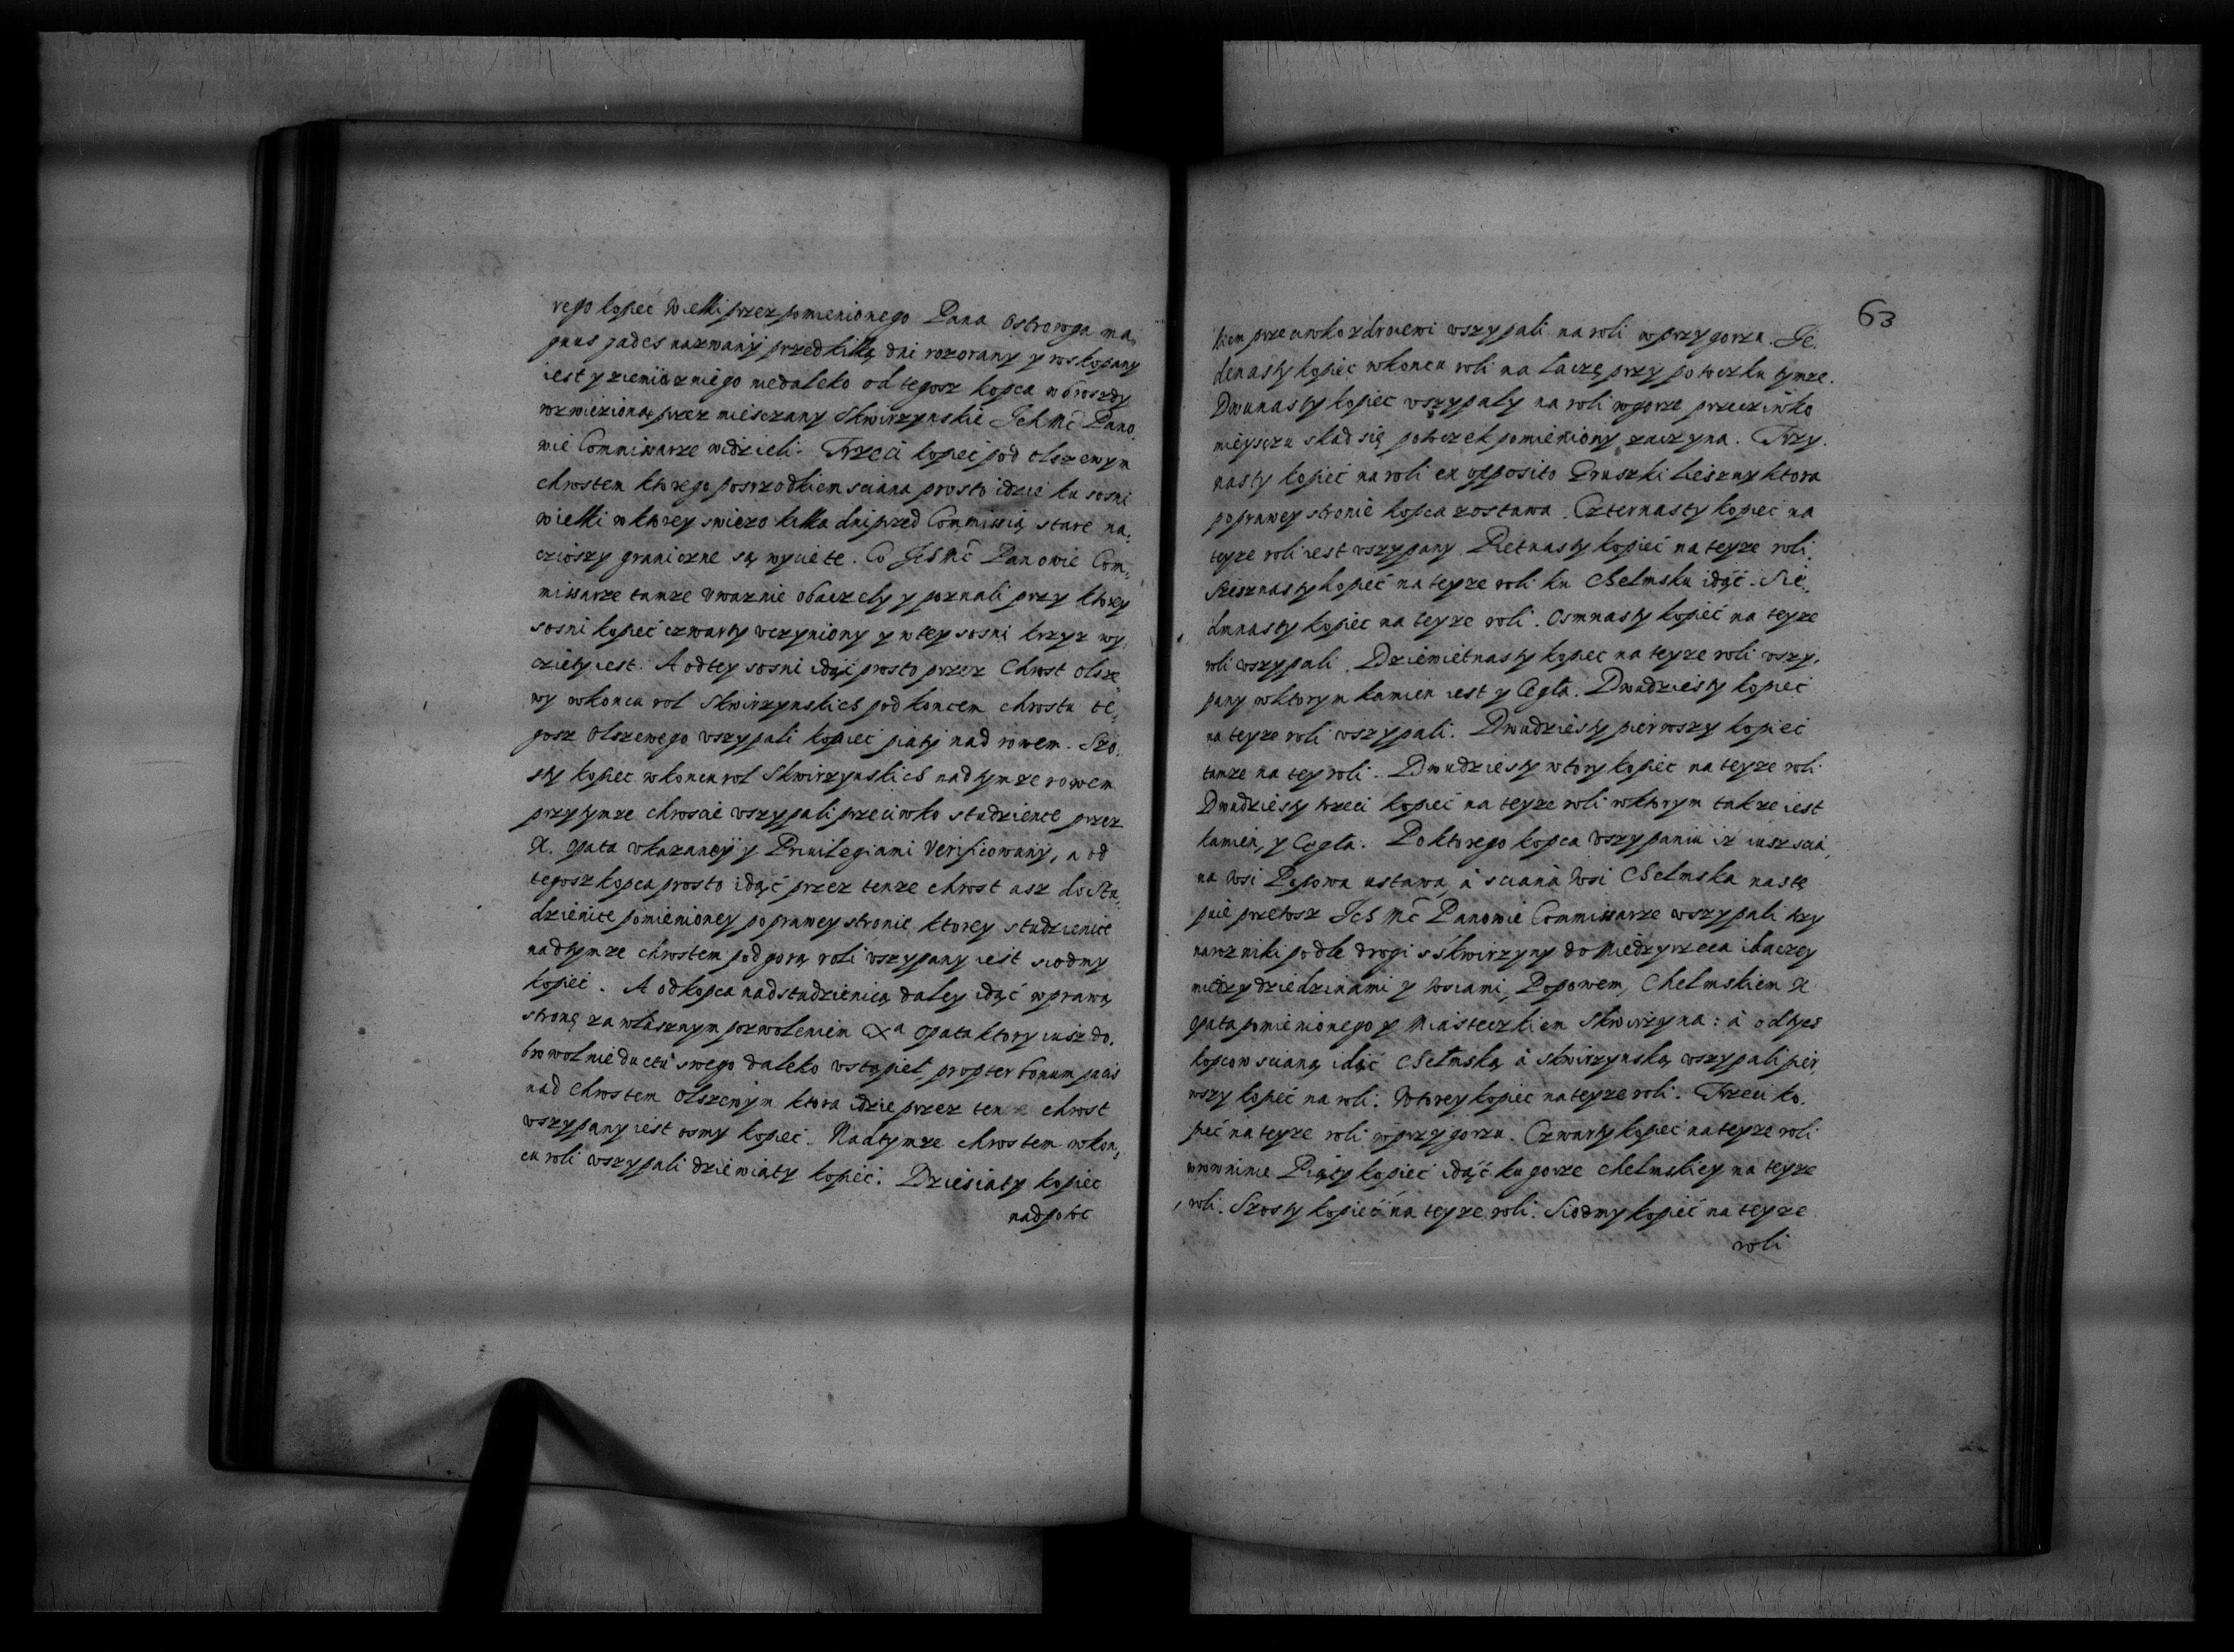 rego kopiec Wielki przez pomienionego Pana Ostroroga ma,
gnus gades nazwany przed kilką dni rozorany y roskopany
iest y ziemia z niego niedaleko od tegosz kopca w brozdy
rozwieziona przez miesczany Skwirzynskie Ich Mć Pano,
wie Commissarze widzieli. Trzeci kopiec pod olszewym
chrostem ktorego posrzodkiem sciana prosto idzie ku sosni
wielki w ktorey swiezo kilka dni przed Commissią stare na,
czioszy graniczne są wycięte. Co Ich Mć Panowie Com,
missarze tamze Uwaznie obaczely y poznali przy ktorey
sosni kopiec czwarty vczyniony y w tey sosni krzyz wy,
cziety iest. A od tey sosni idąć prosto przez Chrost olsze,
wy w koncu rol Skwirzynskich pod koncem chrostu te,
gosz Olszewego vszypali kopiec piąty nad rowem. Szo,
sty kopiec w koncu rol Skwirzynskich nad tymze rowem
przy tymze chroscie vszypali przeciwko studzience przez
X. Opata vkazaney y Priuilegiami Verificowany, a od
tegosz kopca prosto idąć przez tenze chrost asz do Stu,
dzienice pomienioney po prawey stronie ktorey studzienice
nad tymze chrostem pod gorą roli vszypany iest siodmy
kopiec. A od kopca nad studzienicą daley idąć w prawą
stronę za własznym pozwoleniem Xa Opata ktory iusz do,
browolnie ductu swego daleko vstąpieł propter bonum pacis
nad Chrostem Olszewym ktora idzie przez tenze chrost
wszypany iest osmy kopiec. Nad tymze chrostem w kon,
cu roli vszypali dziewiąty kopiec. Dziesiąty kopiec
nad potc
63
kiem przeciwko zdroiewi vszypali na roli w przygorzu. Je,
denasty kopiec w koncu roli na Łacze przy potoczku tymze.
Dwunasty kopiec vszypaly na roli w gorze przecziwko
mieysczu skad się potoczek pomieniony zaczyna. Trzy,
nasty kopiec na roli ex opposito Gruszki lieszny ktora
po prawey stronie kopca zostawa. Czternasty kopiec na
teyze roli iest vszypany. Pietnasty kopiec na teyze roli.
Szesznasty kopieć na teyze roli ku Chelmsku idąć. Sie,
dmnasty kopiec na teyze roli. Osmnasty kopieć na teyze
roli vszypali. Dziewietnasty kopiec na teyze roli vszy,
pany w ktorym kamien iest y Cegła. Dwudziesty kopiec
na teyze roli vszypali. Dwudziesty pierwszy kopiec
tamze na tey roli. Dwudziesty wtory kopiec na teyze roli
Dwudziesty trzeci kopieć na teyze roli w ktorym takze iest
kamien, y Cegła. Po ktorego kopca vszypaniu iz iusz scia,
na Wsi Popowa ustawa, a sciana Wsi Chelmska nastę
puie przetosz Ich Mć Panowie Commissarze vszypali trzy
narozniki podle drogi s Skwirzyny do Miedzyrzecza idaczey
między dziedzinami y Wsciami, Popowem, Chełmskiem X
Opata pomienionego y Miasteczkiem Skwirzyna: a od tych
kopcow scianą idąć Chełmską a Skwirzynską vszypali pier,
wszy kopieć na roli. Wtorey kopiec na teyze roli. Trzeci ko,
pieć na teyze roli w przygorzu. Czwarty kopiec na teyze roli
w rowninie Piąty kopiec idąć ku gorze Chelmskiey na teyze
roli. Szosty kopieć na teyze roli. Siodmy kopieć na teyze
roli